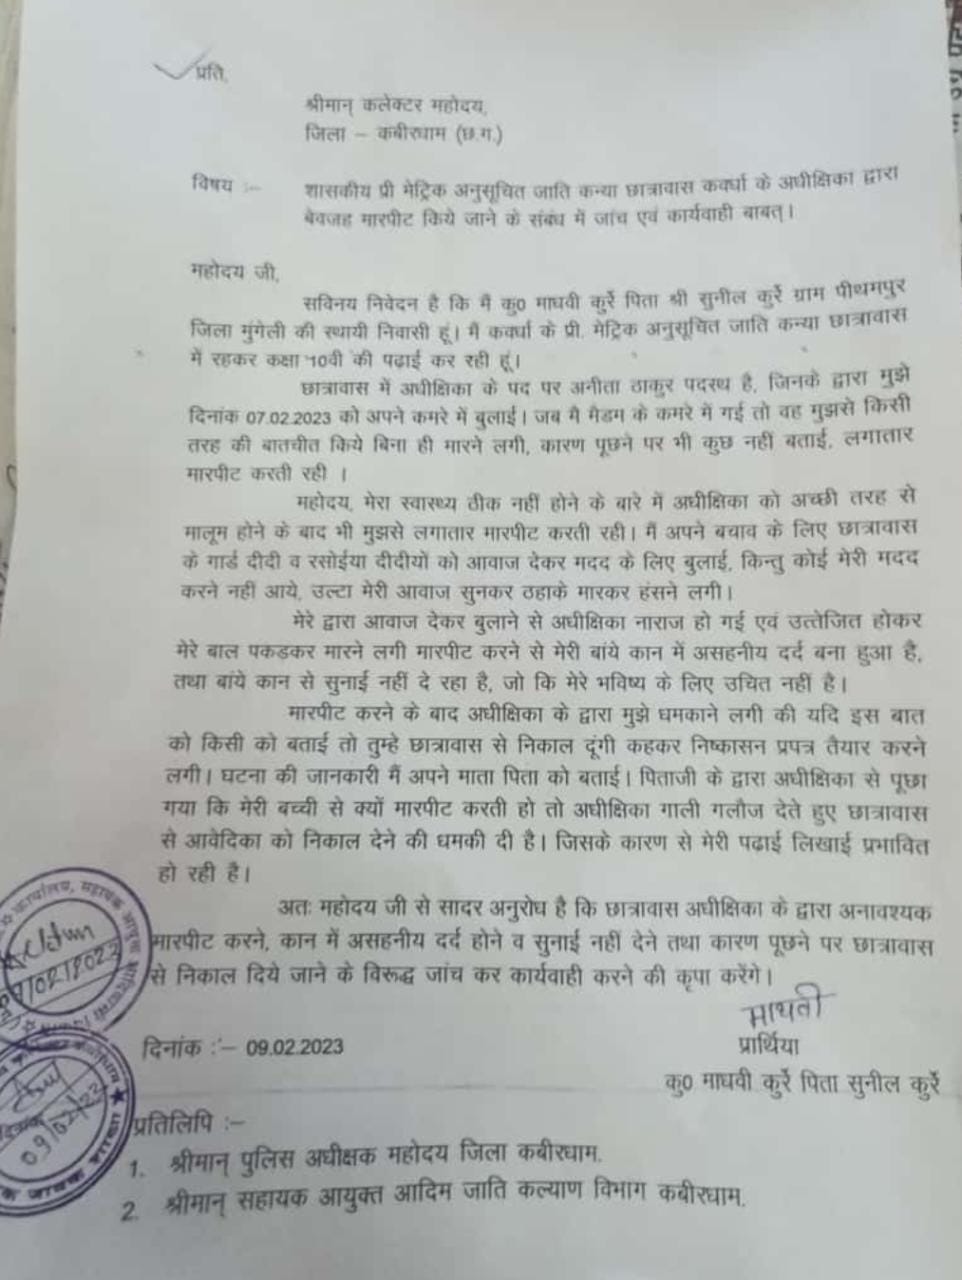 प्रति,
श्रीमान् कलेक्टर महोदय,
जिला – कबीरधाम (छ.ग.)
विषय :– शासकीय प्री मेट्रिक अनुसूचित जाति कन्या छात्रावास कवर्धा के अधीक्षिका द्वारा
बेवजह मारपीट किये जाने के संबंध में जांच एवं कार्यवाही बाबत्।
महोदय जी,
सविनय निवेदन है कि मैं कु0 माधवी कुर्रे पिता श्री सुनील कुर्रे ग्राम पीथमपुर
जिला मुंगेली की स्थायी निवासी हूं। मैं कवर्धा के प्री. मेट्रिक अनुसूचित जाति कन्या छात्रावास
में रहकर कक्षा 10वी की पढ़ाई कर रही हूं।
छात्रावास में अधीक्षिका के पद पर अनीता ठाकुर पदस्थ है, जिनके द्वारा मुझे
दिनांक 07.02.2023 को अपने कमरे में बुलाई। जब मै मैडम के कमरे में गई तो वह मुझसे किसी
तरह की बातचीत किये बिना ही मारने लगी, कारण पूछने पर भी कुछ नहीं बताई, लगातार
मारपीट करती रही ।
महोदय, मेरा स्वास्थ्य ठीक नहीं होने के बारे में अधीक्षिका को अच्छी तरह से
मालूम होने के बाद भी मुझसे लगातार मारपीट करती रही। मैं अपने बचाव के लिए छात्रावास
के गार्ड दीदी व रसोईया दीदीयों को आवाज देकर मदद के लिए बुलाई, किन्तु कोई मेरी मदद
करने नहीं आये, उल्टा मेरी आवाज सुनकर ठहाके मारकर हंसने लगी।
मेरे द्वारा आवाज देकर बुलाने से अधीक्षिका नाराज हो गई एवं उत्तेजित होकर
मेरे बाल पकडकर मारने लगी मारपीट करने से मेरी बांये कान में असहनीय दर्द बना हुआ है,
तथा बांये कान से सुनाई नहीं दे रहा है, जो कि मेरे भविष्य के लिए उचित नहीं है।
मारपीट करने के बाद अधीक्षिका के द्वारा मुझे धमकाने लगी की यदि इस बात
को किसी को बताई तो तुम्हे छात्रावास से निकाल दूंगी कहकर निष्कासन प्रपत्र तैयार करने
लगी। घटना की जानकारी मैं अपने माता पिता को बताई। पिताजी के द्वारा अधीक्षिका से पूछा
गया कि मेरी बच्ची से क्यों मारपीट करती हो तो अधीक्षिका गाली गलौज देते हुए छात्रावास
से आवेदिका को निकाल देने की धमकी दी है। जिसके कारण से मेरी पढ़ाई लिखाई प्रभावित
हो रही है।
अतः महोदय जी से सादर अनुरोध है कि छात्रावास अधीक्षिका के द्वारा अनावश्यक
मारपीट करने, कान में असहनीय दर्द होने व सुनाई नहीं देने तथा कारण पूछने पर छात्रावास
से निकाल दिये जाने के विरूद्ध जांच कर कार्यवाही करने की कृपा करेंगे।
माधवी
दिनांक :– 09.02.2023
प्रार्थिया
कु0 माधवी कुर्रे पिता सुनील कुर्रे
कार्यालय, सहायक आयुक्त
09/02/2023
09/02/23
प्रतिलिपि :–
1. श्रीमान् पुलिस अधीक्षक महोदय जिला कबीरधाम.
2. श्रीमान् सहायक आयुक्त आदिम जाति कल्याण विभाग कबीरधाम.